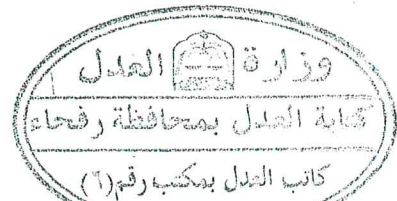 وزارة العدل
كتابة العدل بمحافظة رفحاء
كاتب العدل بمكتب رقم (٦)